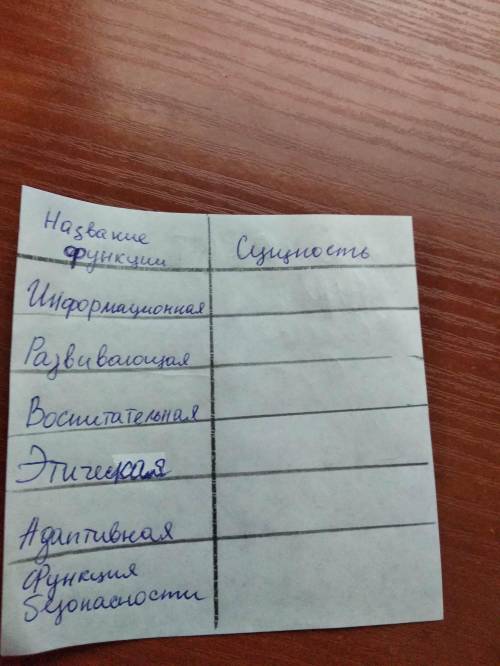 Название
функции
Сущность
Информационная
Развивающая
Воспитательная
Этическая
Адаптивная
Функция
безопасности